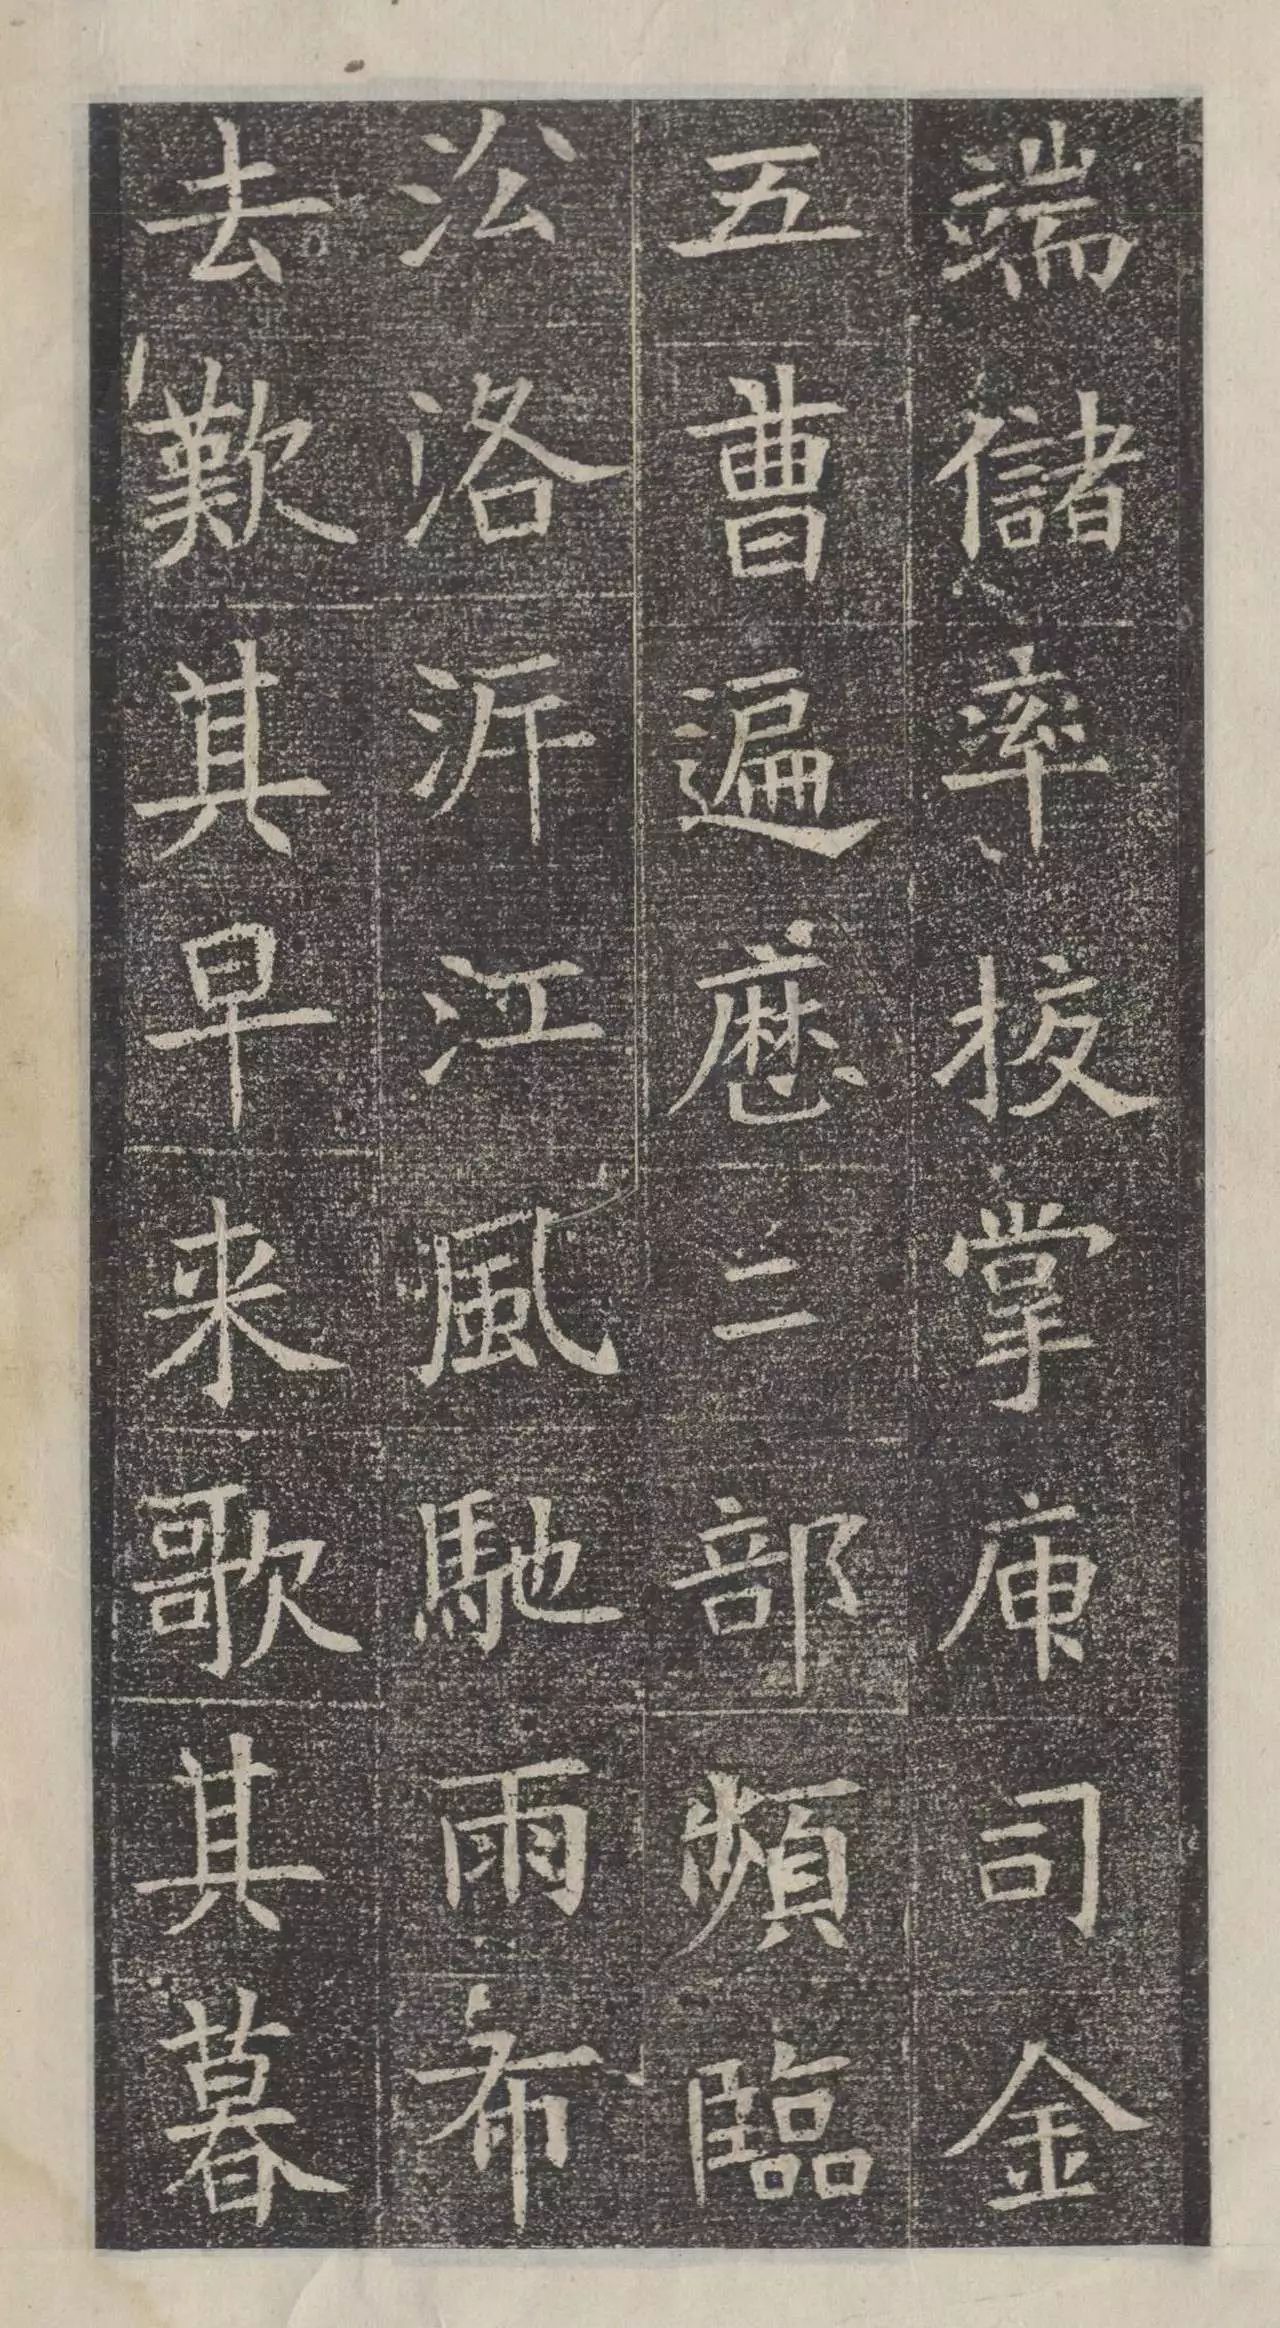 端儲率掖掌庚司金
五曹遍歷二部頻臨
㳂洛泝江風馳雨布
去歎其早来歌其暮